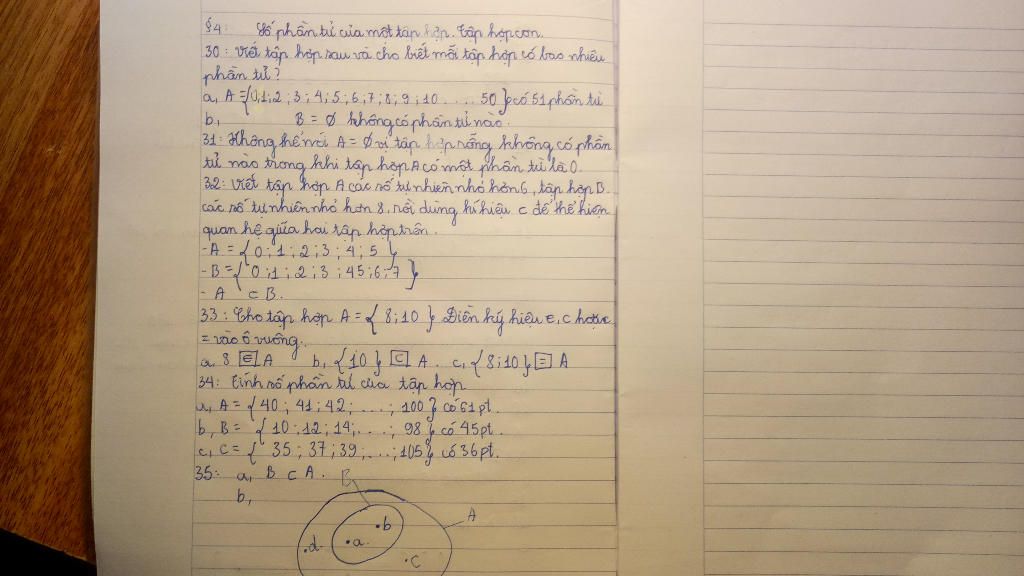 §4: Số phần tử của một tập hợp. Tập hợp con.
30: Viết tập hợp sau và cho biết mỗi tập hợp có bao nhiêu
phần tử?
a, A = {0,1;2;3;4;5;6;7;8;9;10....50} có 51 phần tử
b, B = ∅ không có phần tử nào.
31: Không thể nói A = ∅ vì tập hợp rỗng không có phần
tử nào trong khi tập hợp A có một phần tử là 0.
32: Viết tập hợp A các số tự nhiên nhỏ hơn 6, tập hợp B
các số tự nhiên nhỏ hơn 8, rồi dùng kí hiệu ⊂ để thể hiện
quan hệ giữa hai tập hợp trên.
- A = {0;1;2;3;4;5}
- B = {0;1;2;3;45;6;7}
- A ⊂ B.
33: Cho tập hợp A = {8;10} Điền ký hiệu ∈, ⊂ hoặc
= vào ô vuông.
a, 8 ∈ A b, {10} ⊂ A. c, {8;10} = A
34: Tính số phần tử của tập hợp
a, A = {40;41;42;....;100} có 61 pt.
b, B = {10;12;14;....;98} có 45 pt.
c, C = {35;37;39;...;105} có 36 pt.
35: a, B ⊂ A.
b,
B
A
b
d a
C